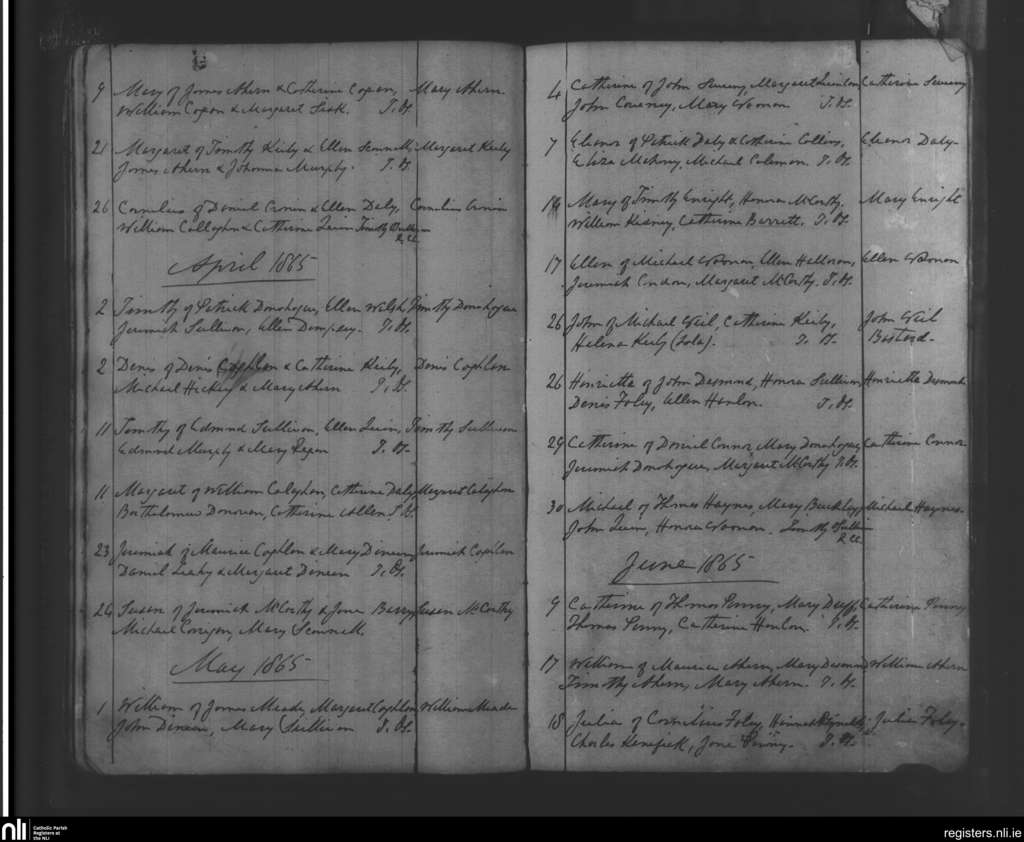 9 Mary of James Ahern & Catherine Copan, Mary Ahern
William Copan & Margaret T. H.
21 Margaret of Timothy Kirby & Ellen Margaret Kirby
James Ahern & Johanna Murphy. T. H.
26 Cornelius of Daniel Cronin & Ellen Daly, Cornelius Cronin
William Callaghan & Catherine Timothy
R.C.C.
April 1865
2 Timothy of Patrick Donohogue, Ellen Walsh, Timothy Donohogue
Jeremiah Sullivan, Ellen Dempsey. T. H.
2 Denis of Denis Coghlan & Catherine Kirby, Denis Coghlan
Michael Hickey & Mary Ahern T. H.
11 Timothy of Edmund Sullivan, Ellen Timothy Sullivan
Edmund Murphy & Mary T. H.
11 Margaret of William Calaghan, Catherine Daly, Margaret Calaghan
Bartholomew Donovan, Catherine Allen T. H.
23 Jeremiah of Maurice Coghlan & Mary Dineen, Jeremiah Coghlan
Daniel Leahy & Margaret Dineen T. H.
Susan of Jeremiah McCarthy & Jane Barry, Susan McCarthy
Michael Corrigan, Mary
May 1865
1 William of James Meade, Margaret Coghlan, William Meade
John Dineen, Mary Sullivan T. H.
4 Catherine of John Margaret Catherine
John Mary T. H.
7 Eleanor of Patrick Daly & Catherine Collins, Eleanor Daly
Eliza Mahony, Michael Coleman. T. H.
14 Mary of Timothy Enright, Honora McCarthy, Mary Enright
William Kidney, Catherine Barrett. T. H.
17 Ellen of Michael Ellen Halloran, Ellen
Jeremiah Condon, Margaret McCarthy. T. H.
26 John of Michael Catherine Kirby, John
Helena Kirby (Sola). T. H. Bastard.
26 Henrietta of John Desmond, Honora Sullivan, Henrietta Desmond
Denis Foley, Ellen Hanlon. T. H.
29 Catherine of Daniel Connor, Mary Donohogue, Catherine Connor
Jeremiah Donohogue, Margaret McCarthy T. H.
30 Michael of Thomas Haynes, Mary Buckley, Michael Haynes
John Honora Timothy
R.C.C.
June 1865
9 Catherine of Thomas Penny, Mary Duff, Catherine Penny
Thomas Penny, Catherine Hanlon. T. H.
17 William of Maurice Ahern, Mary Desmond, William Ahern
Timothy Ahern, Mary Ahern. T. H.
18 Julia of Cornelius Foley, Julia Foley
Charles Kenefick, Jane Penny. T. H.
nli
Catholic Parish
Registers at
the NLI
registers.nli.ie